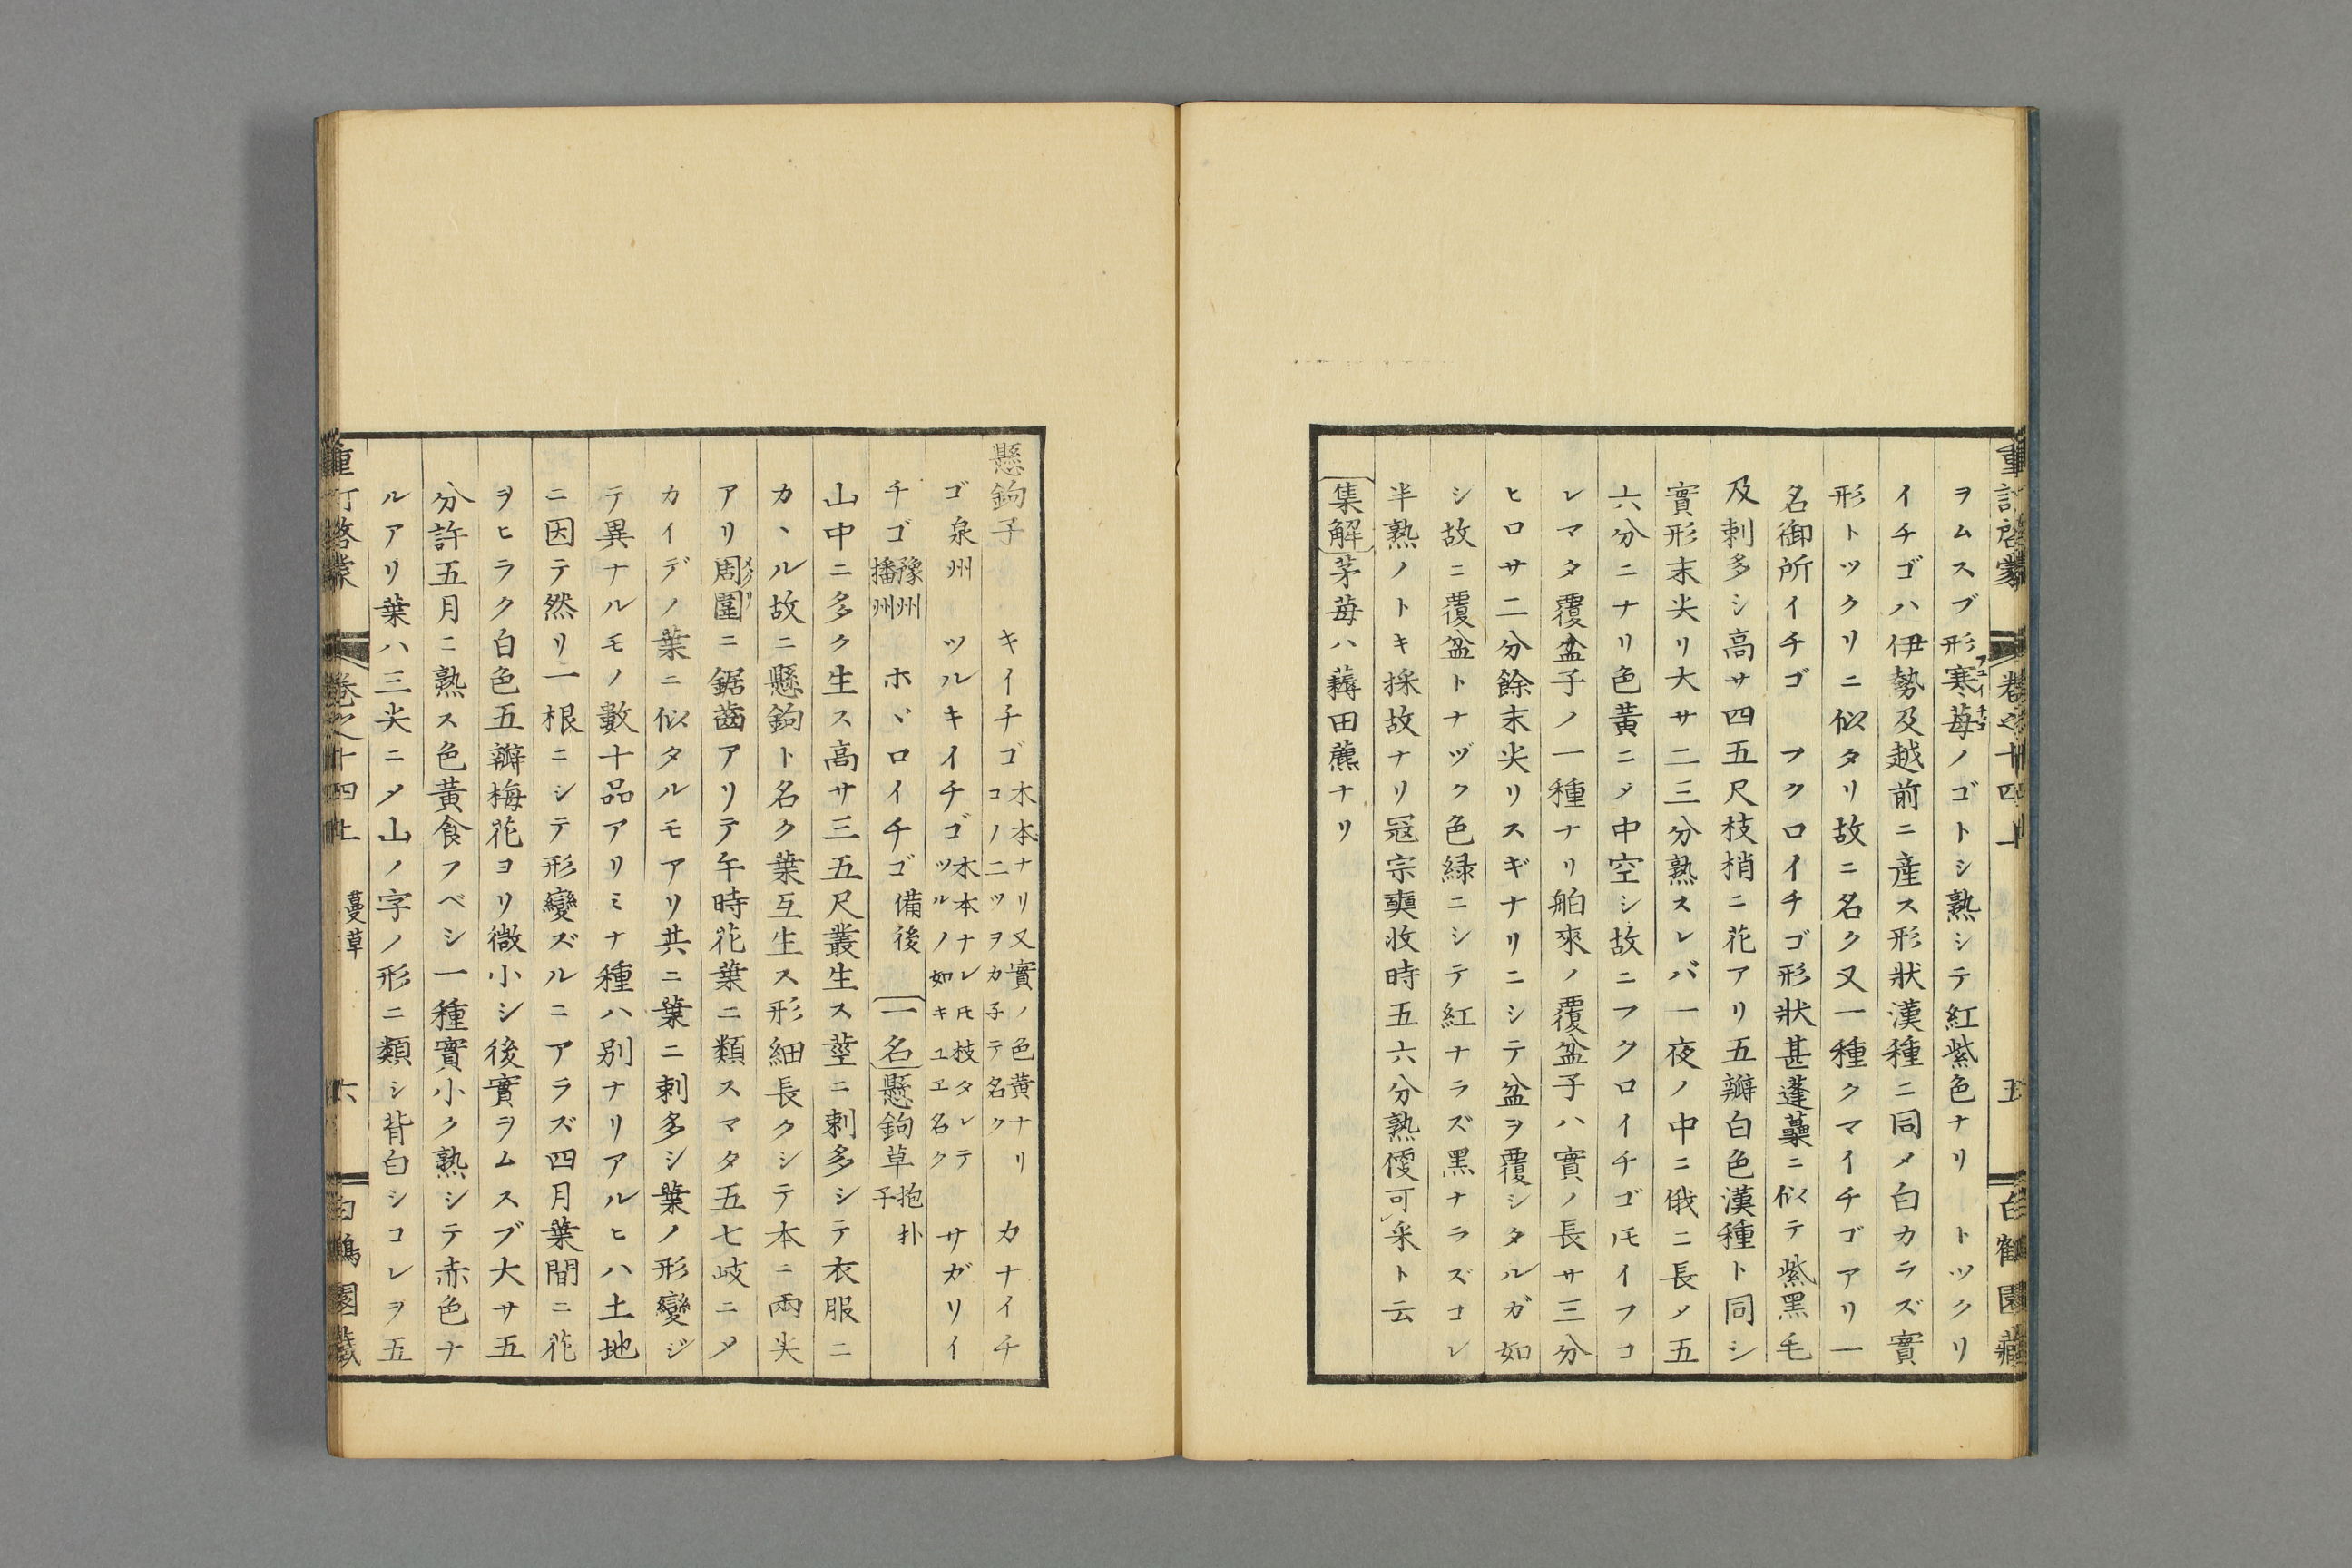 重訂啓蒙 卷之十四上 五 白鶴園藏
ヲムスブ形寒苺ノゴトシ熟シテ紅紫色ナリ トツクリ
イチゴハ伊勢及越前ニ産ス形狀漢種ニ同メ白カラズ實
形トツクリニ似タリ故ニ名ク又一種クマイチゴアリ一
名御所イチゴ フクロイチゴ形狀甚蓬虆ニ似テ紫黑毛
及刺多シ高サ四五尺枝梢ニ花アリ五瓣白色漢種ト同シ
實形末尖リ大サ二三分熟スレバ一夜ノ中ニ俄ニ長メ五
六分ニナリ色黄ニメ中空シ故ニフクロイチゴ𪜈イフコ
レマタ覆盆子ノ一種ナリ舶來ノ覆盆子ハ實ノ長サ三分
ヒロサ二分餘末尖リスギナリニシテ盆ヲ覆シタルガ如
シ故ニ覆盆トナヅク色緑ニシテ紅ナラズ黑ナラズコレ
半熟ノトキ採故ナリ冦宗奭收時五六分熟便可采ト云
集解 茅苺ハ藨田藨ナリ
懸鉤子 キイチゴ 木本ナリ又實ノ色黄ナリ コノニツヲカ子テ名ク カナイチ
ゴ 泉州 ツルキイチゴ 木本ナレ𪜈枝タレテ ツルノ如キユヱ名ク サガリイ
チゴ 豫州 播州 ホヾロイチゴ 備後 一名 懸鉤草 抱朴子
山中ニ多ク生ス高サ三五尺叢生ス莖ニ刺多シテ衣服ニ
カヽル故ニ懸鉤ト名ク葉互生ス形細長クシテ本ニ兩尖
アリ周圍ニ鋸齒アリテ午時花葉ニ類スマタ五七岐ニメ
カイデノ葉ニ似タルモアリ共ニ葉ニ刺多シ葉ノ形變ジ
テ異ナルモノ數十品アリミナ種ハ別ナリアルヒハ土地
ニ因テ然リ一根ニシテ形變ズルニアラズ四月葉間ニ花
ヲヒラク白色五瓣梅花ヨリ微小シ後實ヲムスブ大サ五
分許五月ニ熟ス色黄食フベシ一種實小ク熟シテ赤色ナ
ルアリ葉ハ三尖ニメ山ノ字ノ形ニ類シ背白シコレヲ五
重訂啓蒙 卷之十四上 蔓草 六 白鶴園藏